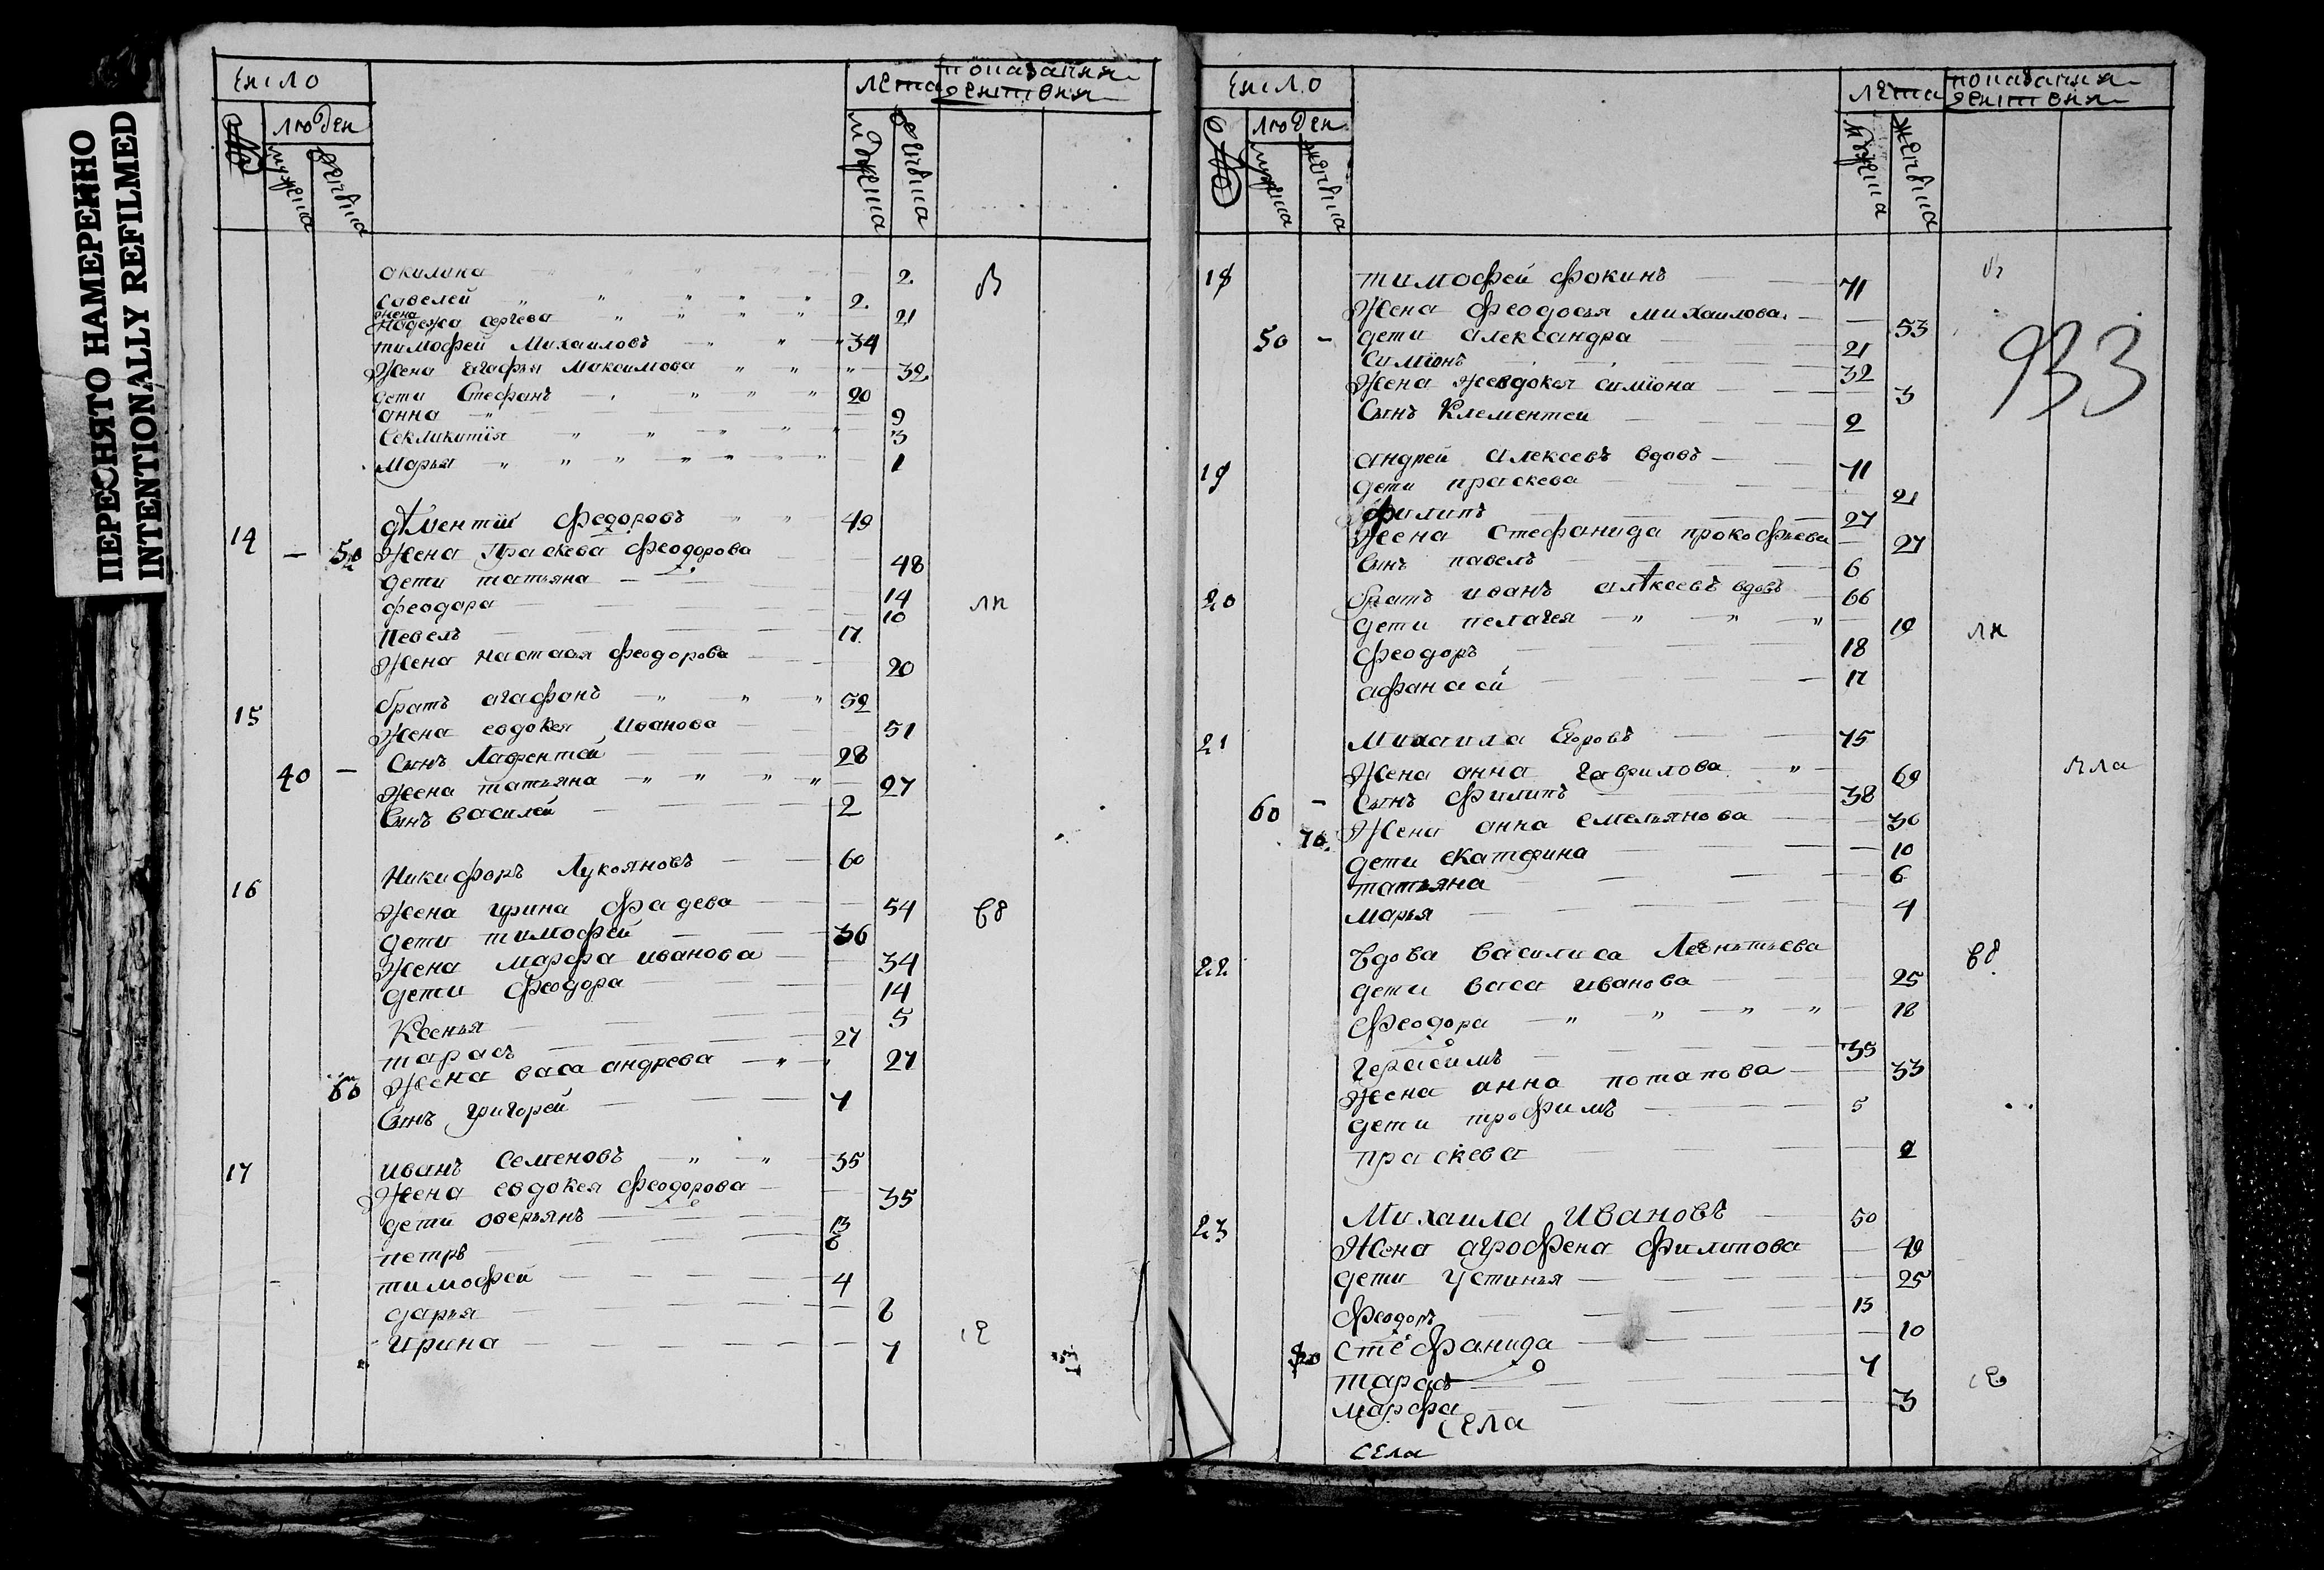 ПЕРЕСНЯТО НАМЕРЕННО
INTENTIONALLY REFILMED
число
людей
лета
показания
окилина 2
Савелей 2
жена
Надежа сергева 21
тимофей Михаиловъ 34
Жена агафья Максимова 32
дети Стефанъ 20
анна 9
3
Марья 1
14 Федоровъ 49
50 Жена Праскева Феодорова 48
дети татьяна 14
феодора 10
Певелъ 17
лп
Жена настася феодорова 20
15 братъ агафонъ 52
Жена евдокея Иванова 51
Сынъ Лафентей 28
40 Жена татьяна 27
Сынъ василей 2
16 Никифоръ Лукояновъ 60
Жена ирина Фадева 54
дети тимофей 36
Жена марфа иванова 34
дети Феодора 14
Ксенья 5
тарасъ 27
60 Жена васа андрева 27
Сынъ григорей 4
17 иванъ Семеновъ 35
Жена евдокея феодорова 35
дети оверьянъ 13
петръ
тимофей 4
дарья
Ирина
число
людей
лета
показания
18 тимофей фокинъ 71
Жена феодосья михаилова 53
50 дети александра 21
Симіонъ 32
Жена жевдокея симіона 3
Сынъ Клементей 2
933
19 андрей алексевъ вдовъ 71
дети праскева 21
филипъ 27
Жена Стефанида прокофьева 27
Сынъ павелъ 6
20 братъ иванъ алѣксевъ вдовъ 66
дети пелагея 19
феодоръ 18
афанасей 17
лп
21 Михаила Егоровъ 75
Жена анна гаврилова 69
60 Сынъ филипъ 38
70 Жена анна емельянова 36
дети екатерина 10
татьяна 6
марья 4
22 Вдова василиса Леонтьева
дети васа иванова 25
Феодора 18
герасимъ 35
Жена анна потапова 33
дети трофимъ 5
праскева 2
23 Михаила Ивановъ 50
Жена агрофена филипова 49
дети Устинья 25
Феодоръ 13
Стефанида 10
тарасъ
марфа 3
села
села